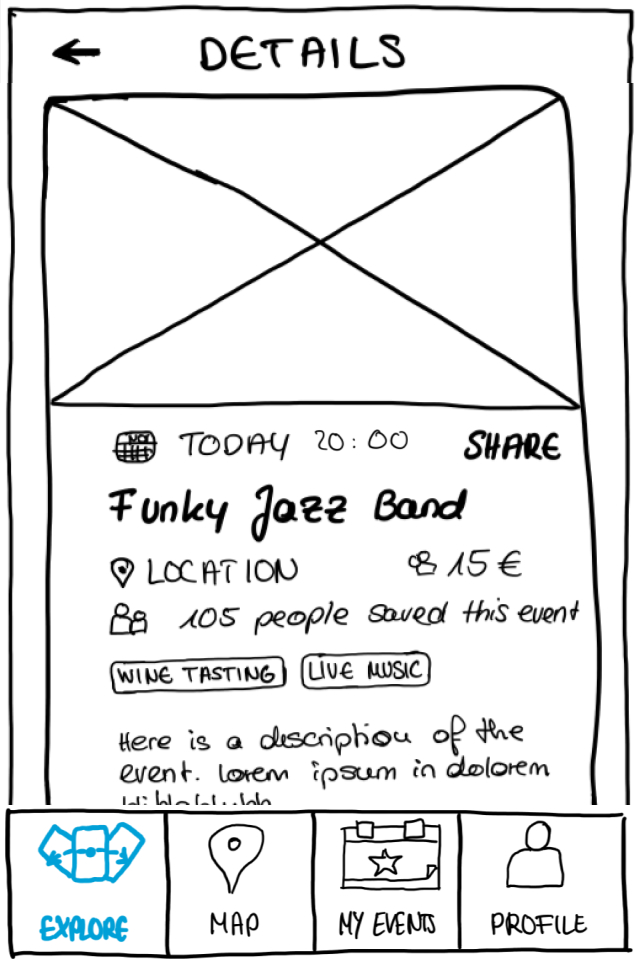 DETAILS
TODAY 20:00 SHARE
Funky Jazz Band
LOCATION 15 €
105 people saved this event
WINE TASTING LIVE MUSIC
Here is a description of the
event. Lorem ipsum in dolorem
EXPLORE MAP MY EVENTS PROFILE